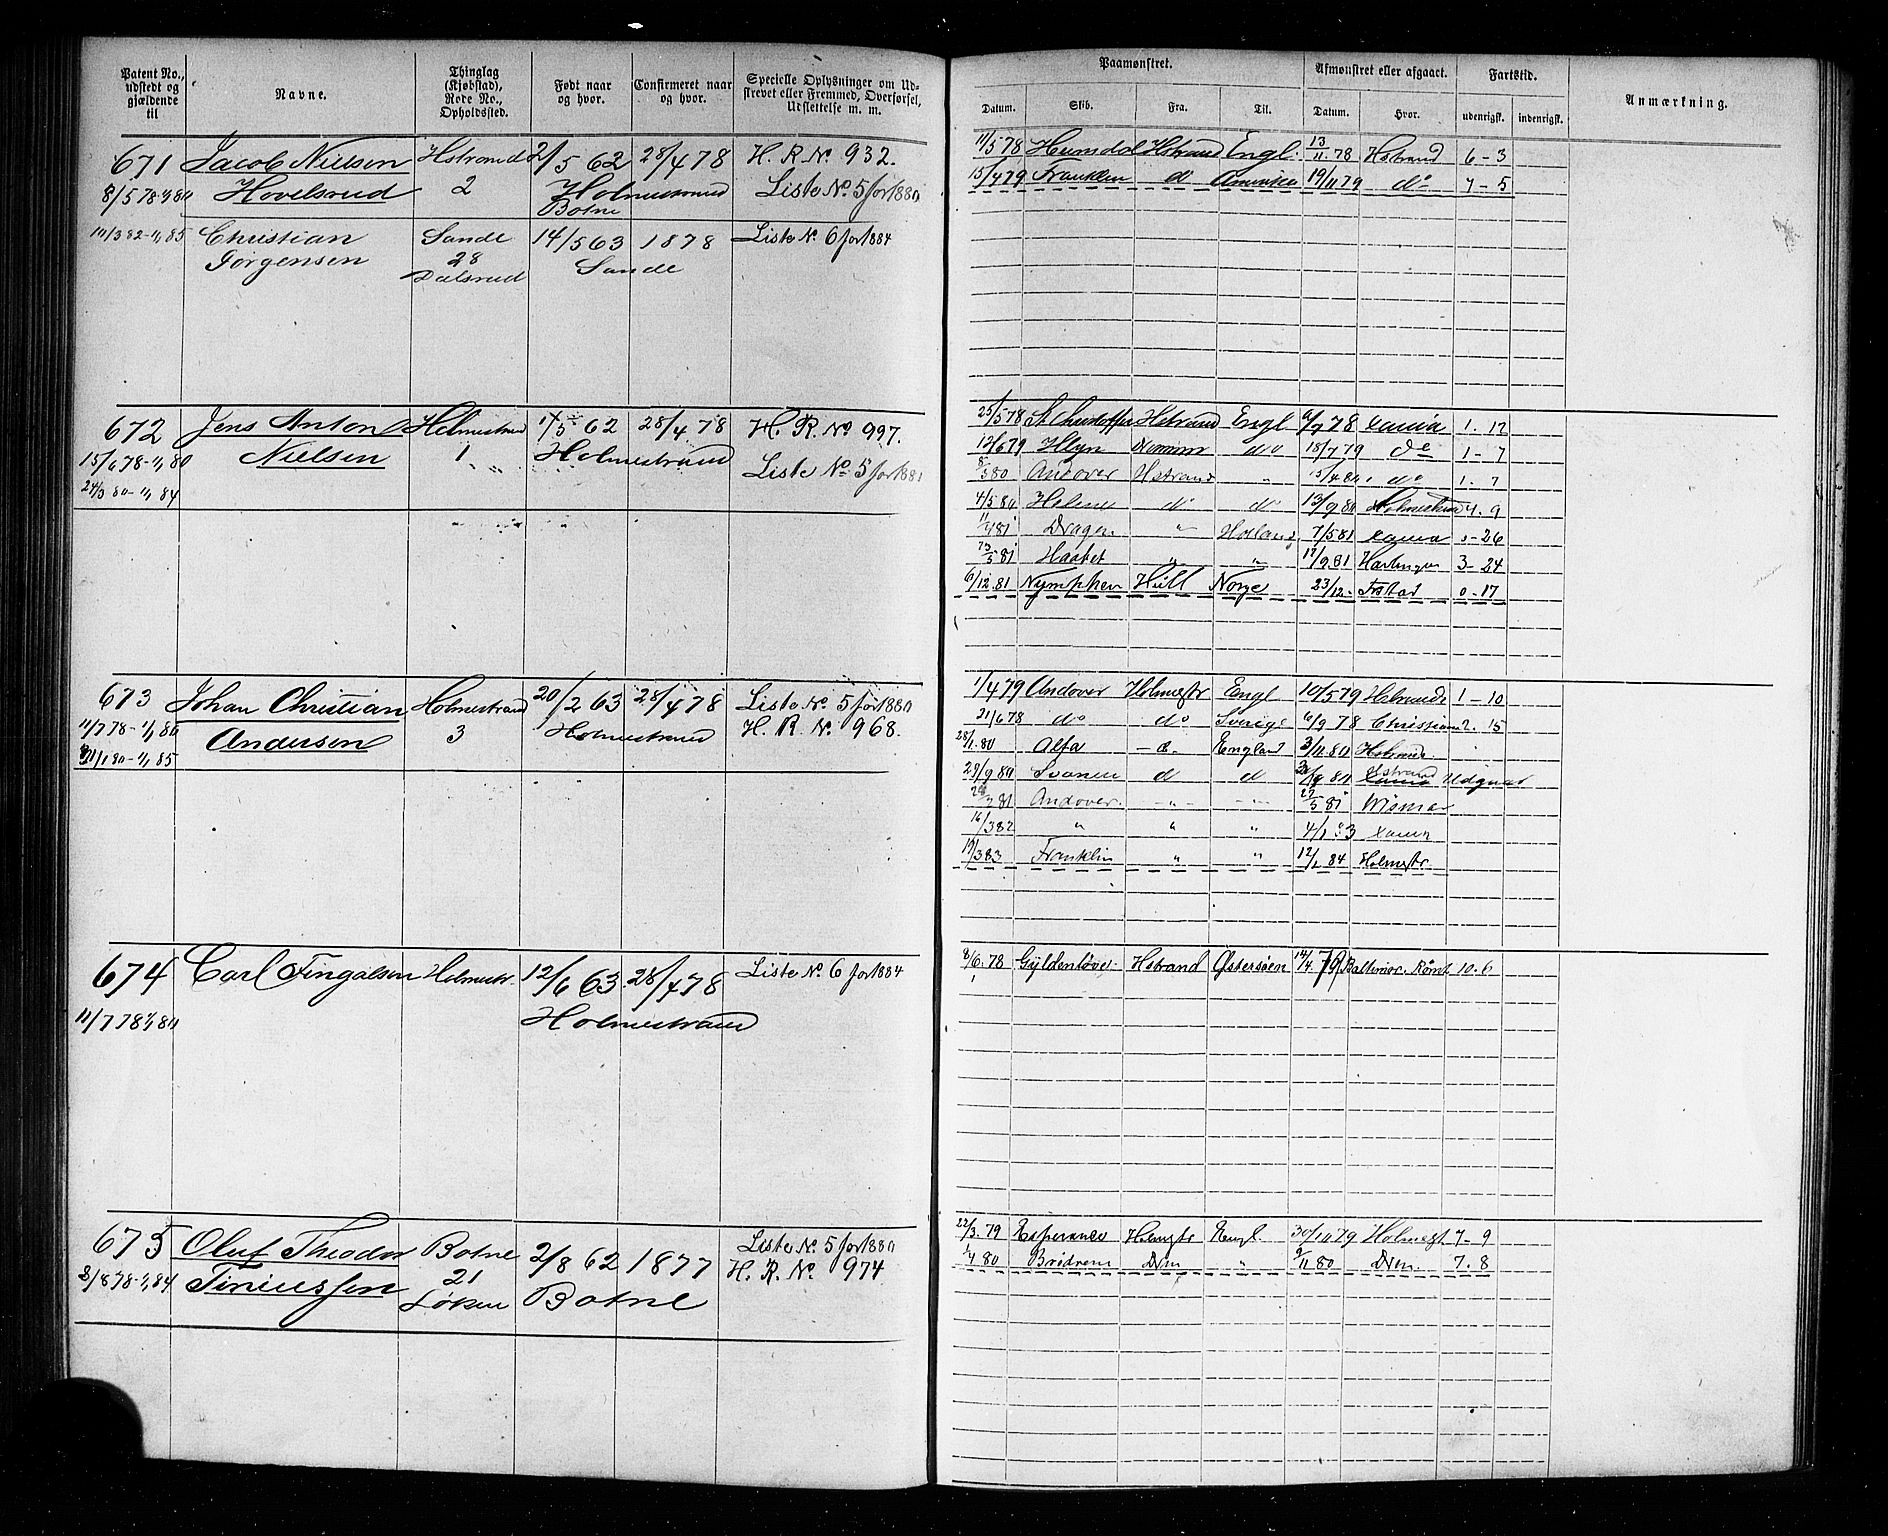 Patent No., udstedt og gjældende til
Navne.
Thinglag (Kjøbstad), Rode No., Opholdssted.
Født naar og hvor.
Confirmeret naar og hvor.
Specielle Oplysninger om Udskrevet eller Fremmed, Overførsel, Udslettelse m. m.
Paamønstret.
Afmønstret eller afgaaet.
Fartstid.
Anmærkning.
Datum. Skib. Fra. Til. Datum. Hvor. udenrigsk. indenrigsk.
671 Jacob Nielsen Hstrand 2/5 62 28/4 78 H. R. No 932.
8/5 78 Hovelsrud 2 Holmestrand Liste No 5 for 1880
Botne
Christian Sande 14/5 63 1878 Liste No. 6 for 1884
Jørgensen 28 Sande
Dalsrud
11/5 78 Hstrand Engl. 13/11-78 Hstrand 6-3
15/4 79 Franklin do 19/11 79 do 7-5
672 Jens Anton Holmestrand 28/4 78 H. R. No 997.
15/6 78 - 1/1 80 Nielsen 1 Holmestrand Liste No 5 for 1881
24/3 80 - 1/1 84
25/5 78 Hstrand Engl 78 1. 12
12/6 79 do 18/7 79 do 1-7
Andover Hstrand " do 1. 7
4/5 80 do do 13/9 80 Holmestrand 4. 9
Dragen " Holland 7/5 81 0-26
Haabet " " 17/9 81 Harlingen 3-24
6/12 81 Nymphen Hull Norge 23/12- 0-17
673 Johan Christian Holmestrand 20/2 63 28/4 78 Liste No. 5 for 1880
11/7 78 - 1/1 80 Andersen 3 Holmestrand H. R. No. 968.
1/1 85
1/4 79 Andover Holmestr Engl 10/5 79 Hstrand 1-10
21/6 78 do do Sverige 6/9 78 2. 15
28/1. 80 Alfa England 3/11 80 Hstrand
29/9 80 Svanen d d Hstrand
Andover. -"- -"- 27/5 81 Wismar
16/3 82 " " "
19/3 83 Franklin " " 12/1 84 Holmestr.
674 Carl Fingalsen Holmestr. 12/6 63. 28/4 78 Liste No. 6 for 1884
11/7 78 1/1 80 Holmestrand
8/6. 78 Gyldenløve Hstrand Østersøen 14/4 79 Baltimor. Rømt 10. 6
675 Oluf Theodor Botne 2/8 62 1877 Liste No. 5 for 1880
8/8 78 - 1/1 84 Tiniussen 21 Botne H. R. No. 974
Løken
22/3. 79 Esperance Holmstr Engl. 30/10 79 Holmest. 7-9
80 Brødrene Dm " 9/11 80 7. 8